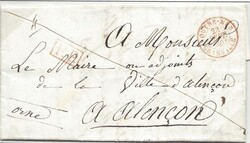 A Monsieur
Le Maire ou adjoints
de la Ville d'alençon
orne
a alençon